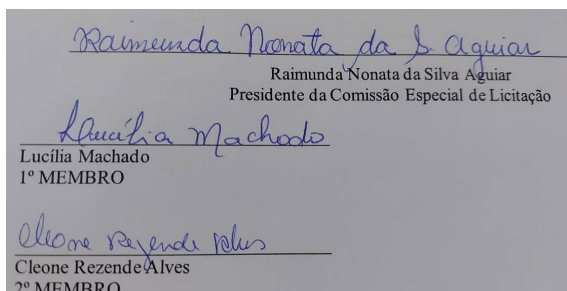 Raimunda Nonata da S. Aguiar
Raimunda Nonata da Silva Aguiar
Presidente da Comissão Especial de Licitação
Lucília Machado
Lucília Machado
1º MEMBRO
Cleone Rezende Alves
Cleone Rezende Alves
2º MEMBRO